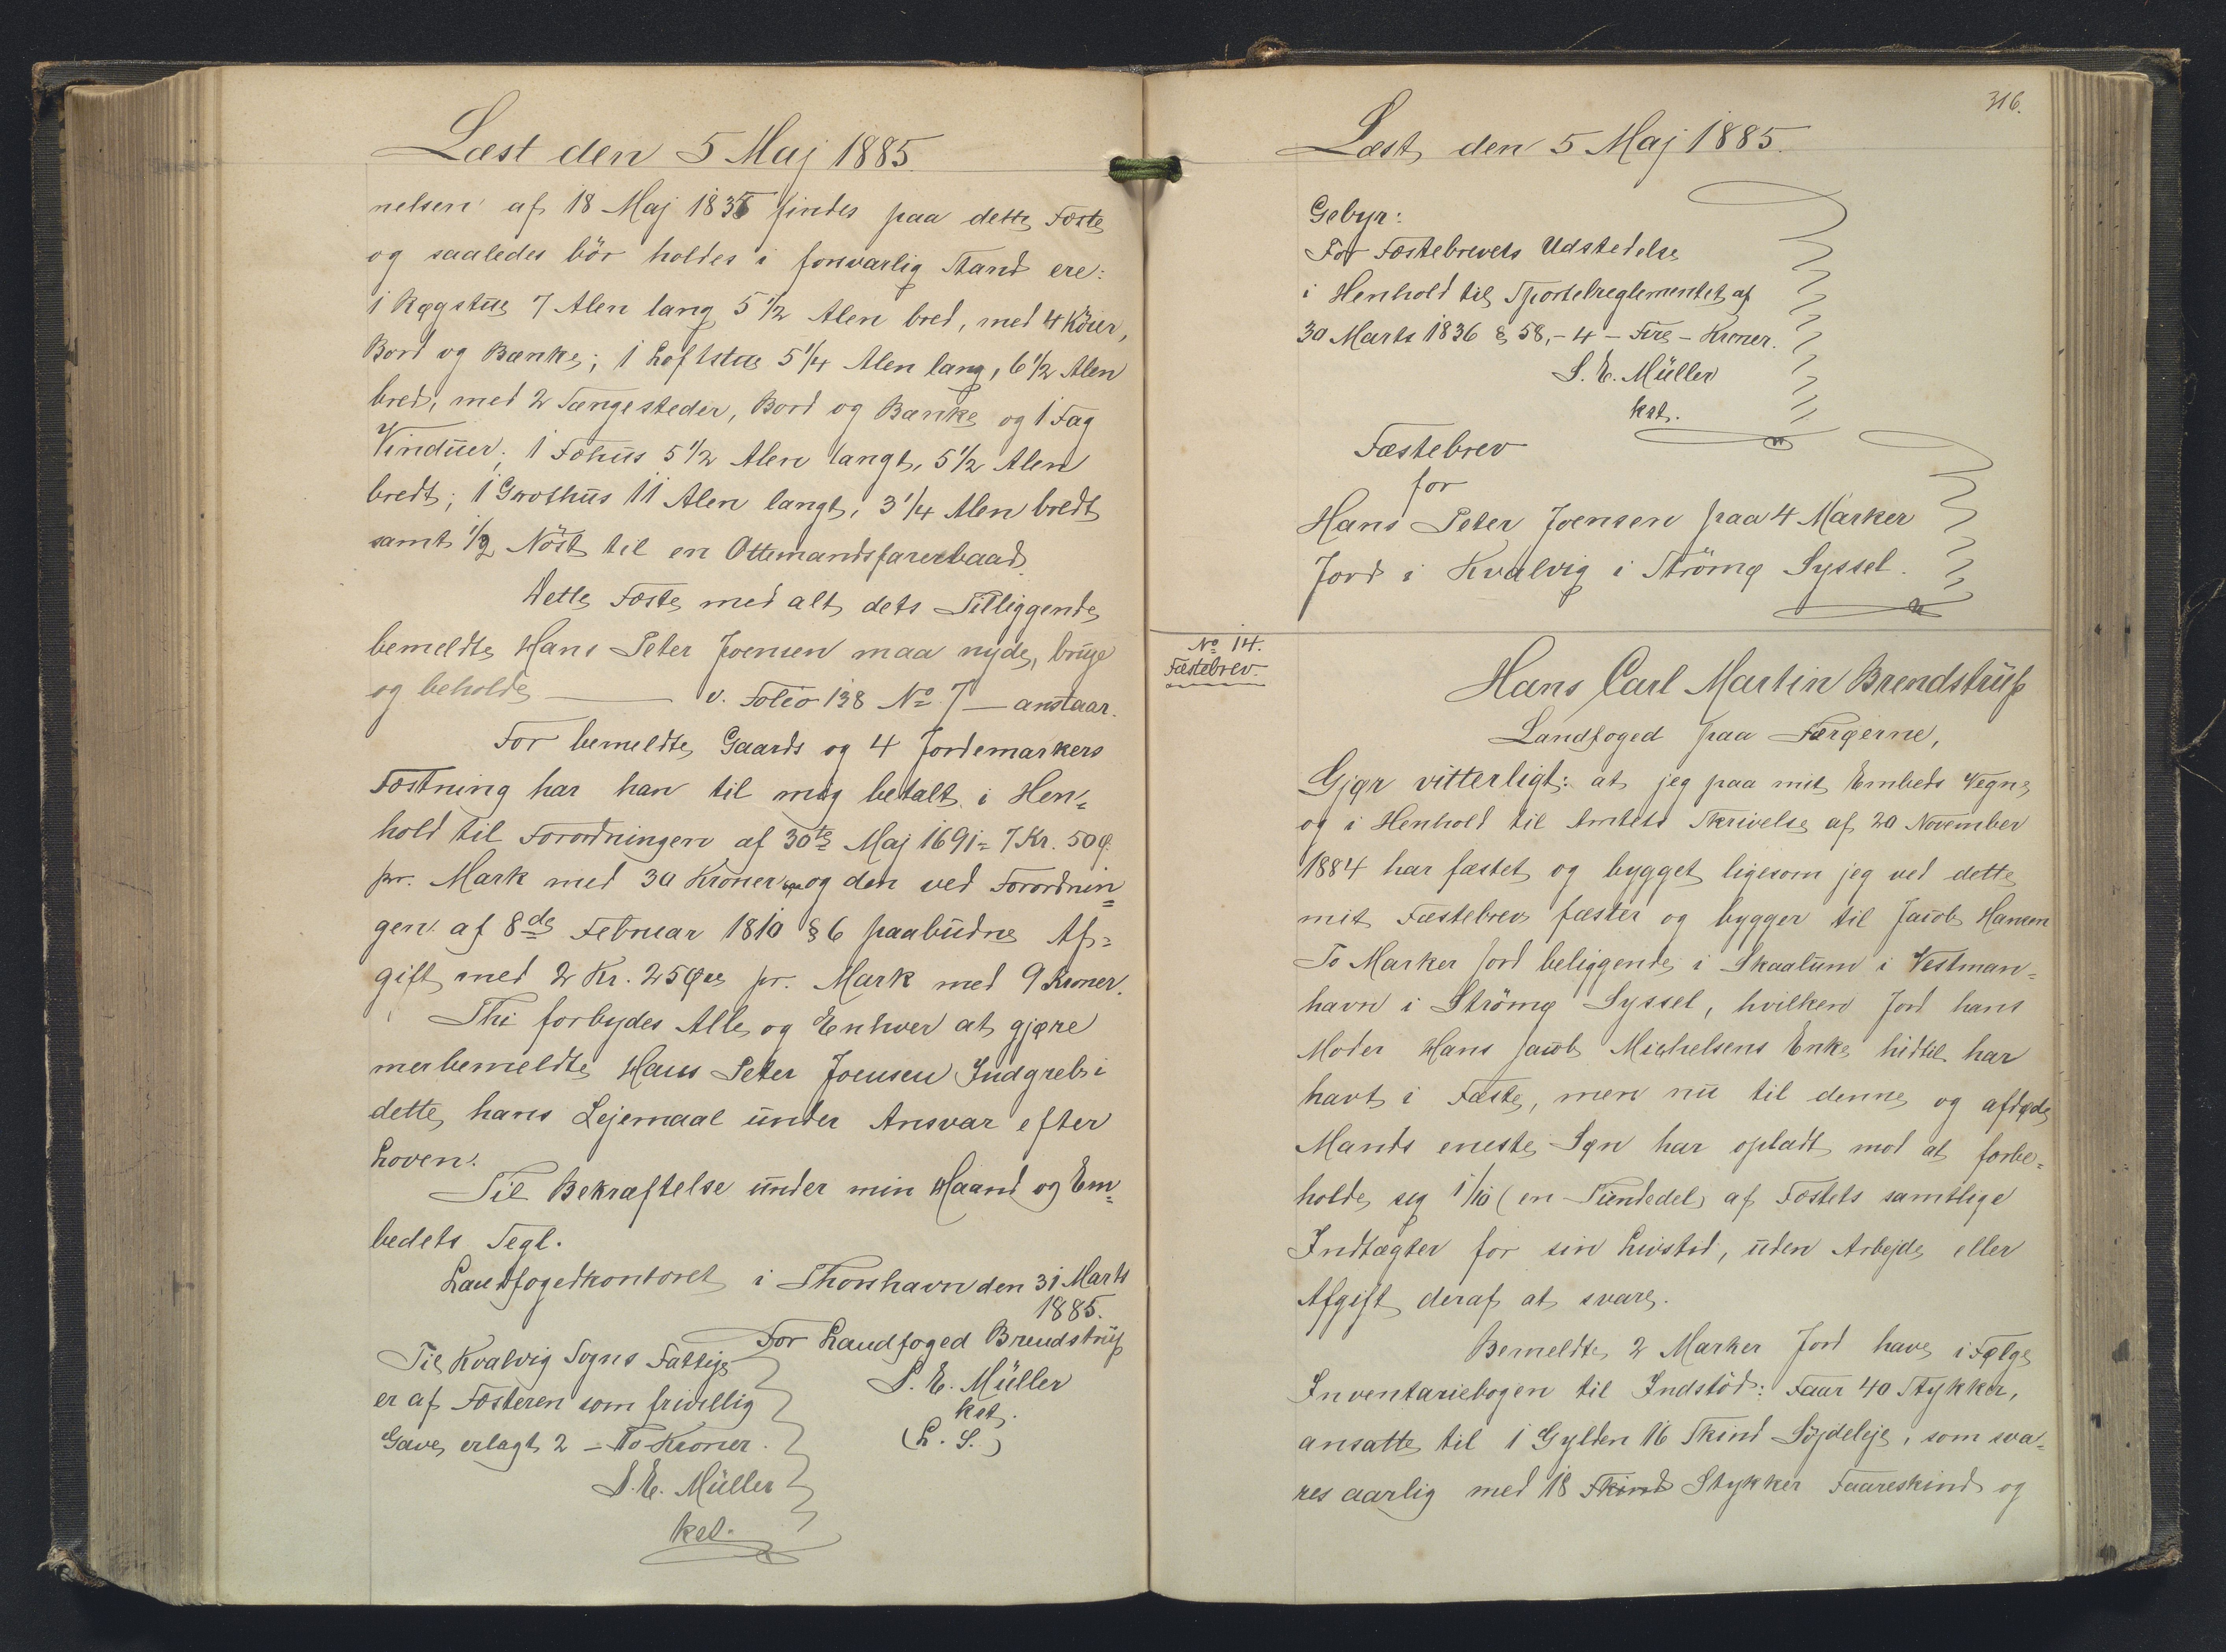 Læst den 5 Maj 1885.
nelsen af 18 Maj 1835 findes paa dette Fæste
og saaledes bör holdes i forsvarlig Stand ere:
1 Røgstue 7 Alen lang 5 1/2 Alen bred, med 4 Köier,
Bord og Bænke; 1 Loftstue 5 1/4 Alen lang, 6 1/2 Alen
bred, med 2 Sængesteder, Bord og Bænke og 1 Fag
Vinduer; 1 Fæhus 5 1/2 Alen langt, 5 1/2 Alen
bredt; 1 Grothus 11 Alen langt, 3 1/4 Alen bredt
samt 1/2 Nöst til en Ottemandsfarerbaad.
Dette Fæste med alt dets Tilliggende
bemeldte Hans Peter Joensen maa nyde, bruge
og beholde — v. Folio 138 No 7 — anstaar.
For bemeldte Gaards og 4 Jordemarkers
Fæstning har han til mig betalt i Hen=
hold til Forordningen af 30te Maj 1691 = 7 Kr. 50 Ø.
pr. Mark med 30 Kroner og den ved Forordnin=
gen af 8de Februar 1810 § 6 paabudne Af=
gift med 2 Kr. 25 Øre pr. Mark med 9 Kroner.
Thi forbydes Alle og Enhver at gjøre
merbemeldte Hans Peter Joensen Indgreb i
dette hans Lejemaal under Ansvar efter
Loven.
Til Bekræftelse under min Haand og Em=
bedets Segl.
Landfogedkontoret i Thorshavn den 31 Marts
1885.
For Landfoged Brendstrup
S. E. Müller
kst.
(L. S.)
Til Kvalvig Sogns Fattige
er af Fæsteren som frivillig
Gave erlagt 2 - To Kroner.
S. E. Müller
kst.
316.
Læst den 5 Maj 1885.
Gebyr:
For Fæstebrevets Udstedelse
i Henhold til Sportelreglementet af
30 Marts 1836 § 58, - 4 - Fire - Kroner.
S. E. Müller
kst.
Fæstebrev
for
Hans Peter Joensen paa 4 Marker
Jord i Kvalvig i Strömø Syssel.
No 14.
Fæstebrev.
Hans Carl Martin Brendstrup
Landfoged paa Færøerne,
Gjør vitterligt: at jeg paa mit Embeds Vegne
og i Henhold til Amtets Skrivelse af 20 November
1884 har fæstet og bygget ligesom jeg ved dette
mit Fæstebrev fæster og bygger til Jacob Hansen
To Marker Jord beliggende i Skaalum i Vestman=
havn i Strömø Syssel, hvilken Jord hans
Moder Hans Jacob Michelsens Enke hidtil har
havt i Fæste, men nu til denne og afdøde
Mands eneste Søn har opladt mod at forbe=
holde sig 1/10 (en Tiendedel) af Fæstets samtlige
Indtægter for sin Livstid, uden Arbejde eller
Afgift deraf at svare.
Bemeldte 2 Marker Jord have i Følge
Inventariebogen til Indstöd: Faar 40 Stykker,
ansatte til 1 Gylden 16 Skind Söjdeleje, som sva=
res aarlig med 18 Skind Stykker Faareskind og